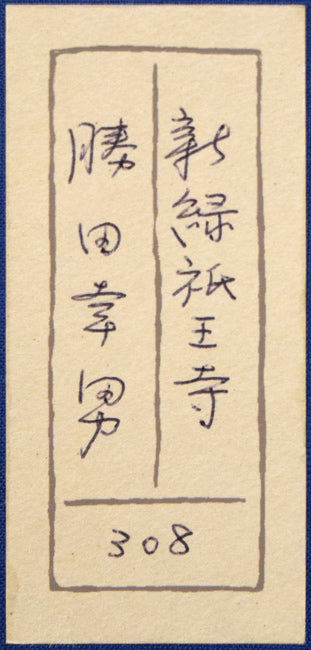 新緑祇王寺
勝田幸男
308